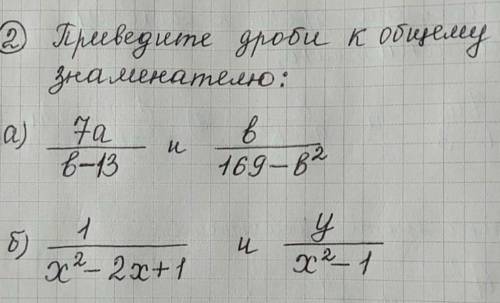 2 Приведите дроби к общему
знаменателю:
а) 7а/(в-13) и в/(169-в²)
б) 1/(x²-2x+1) и y/(x²-1)